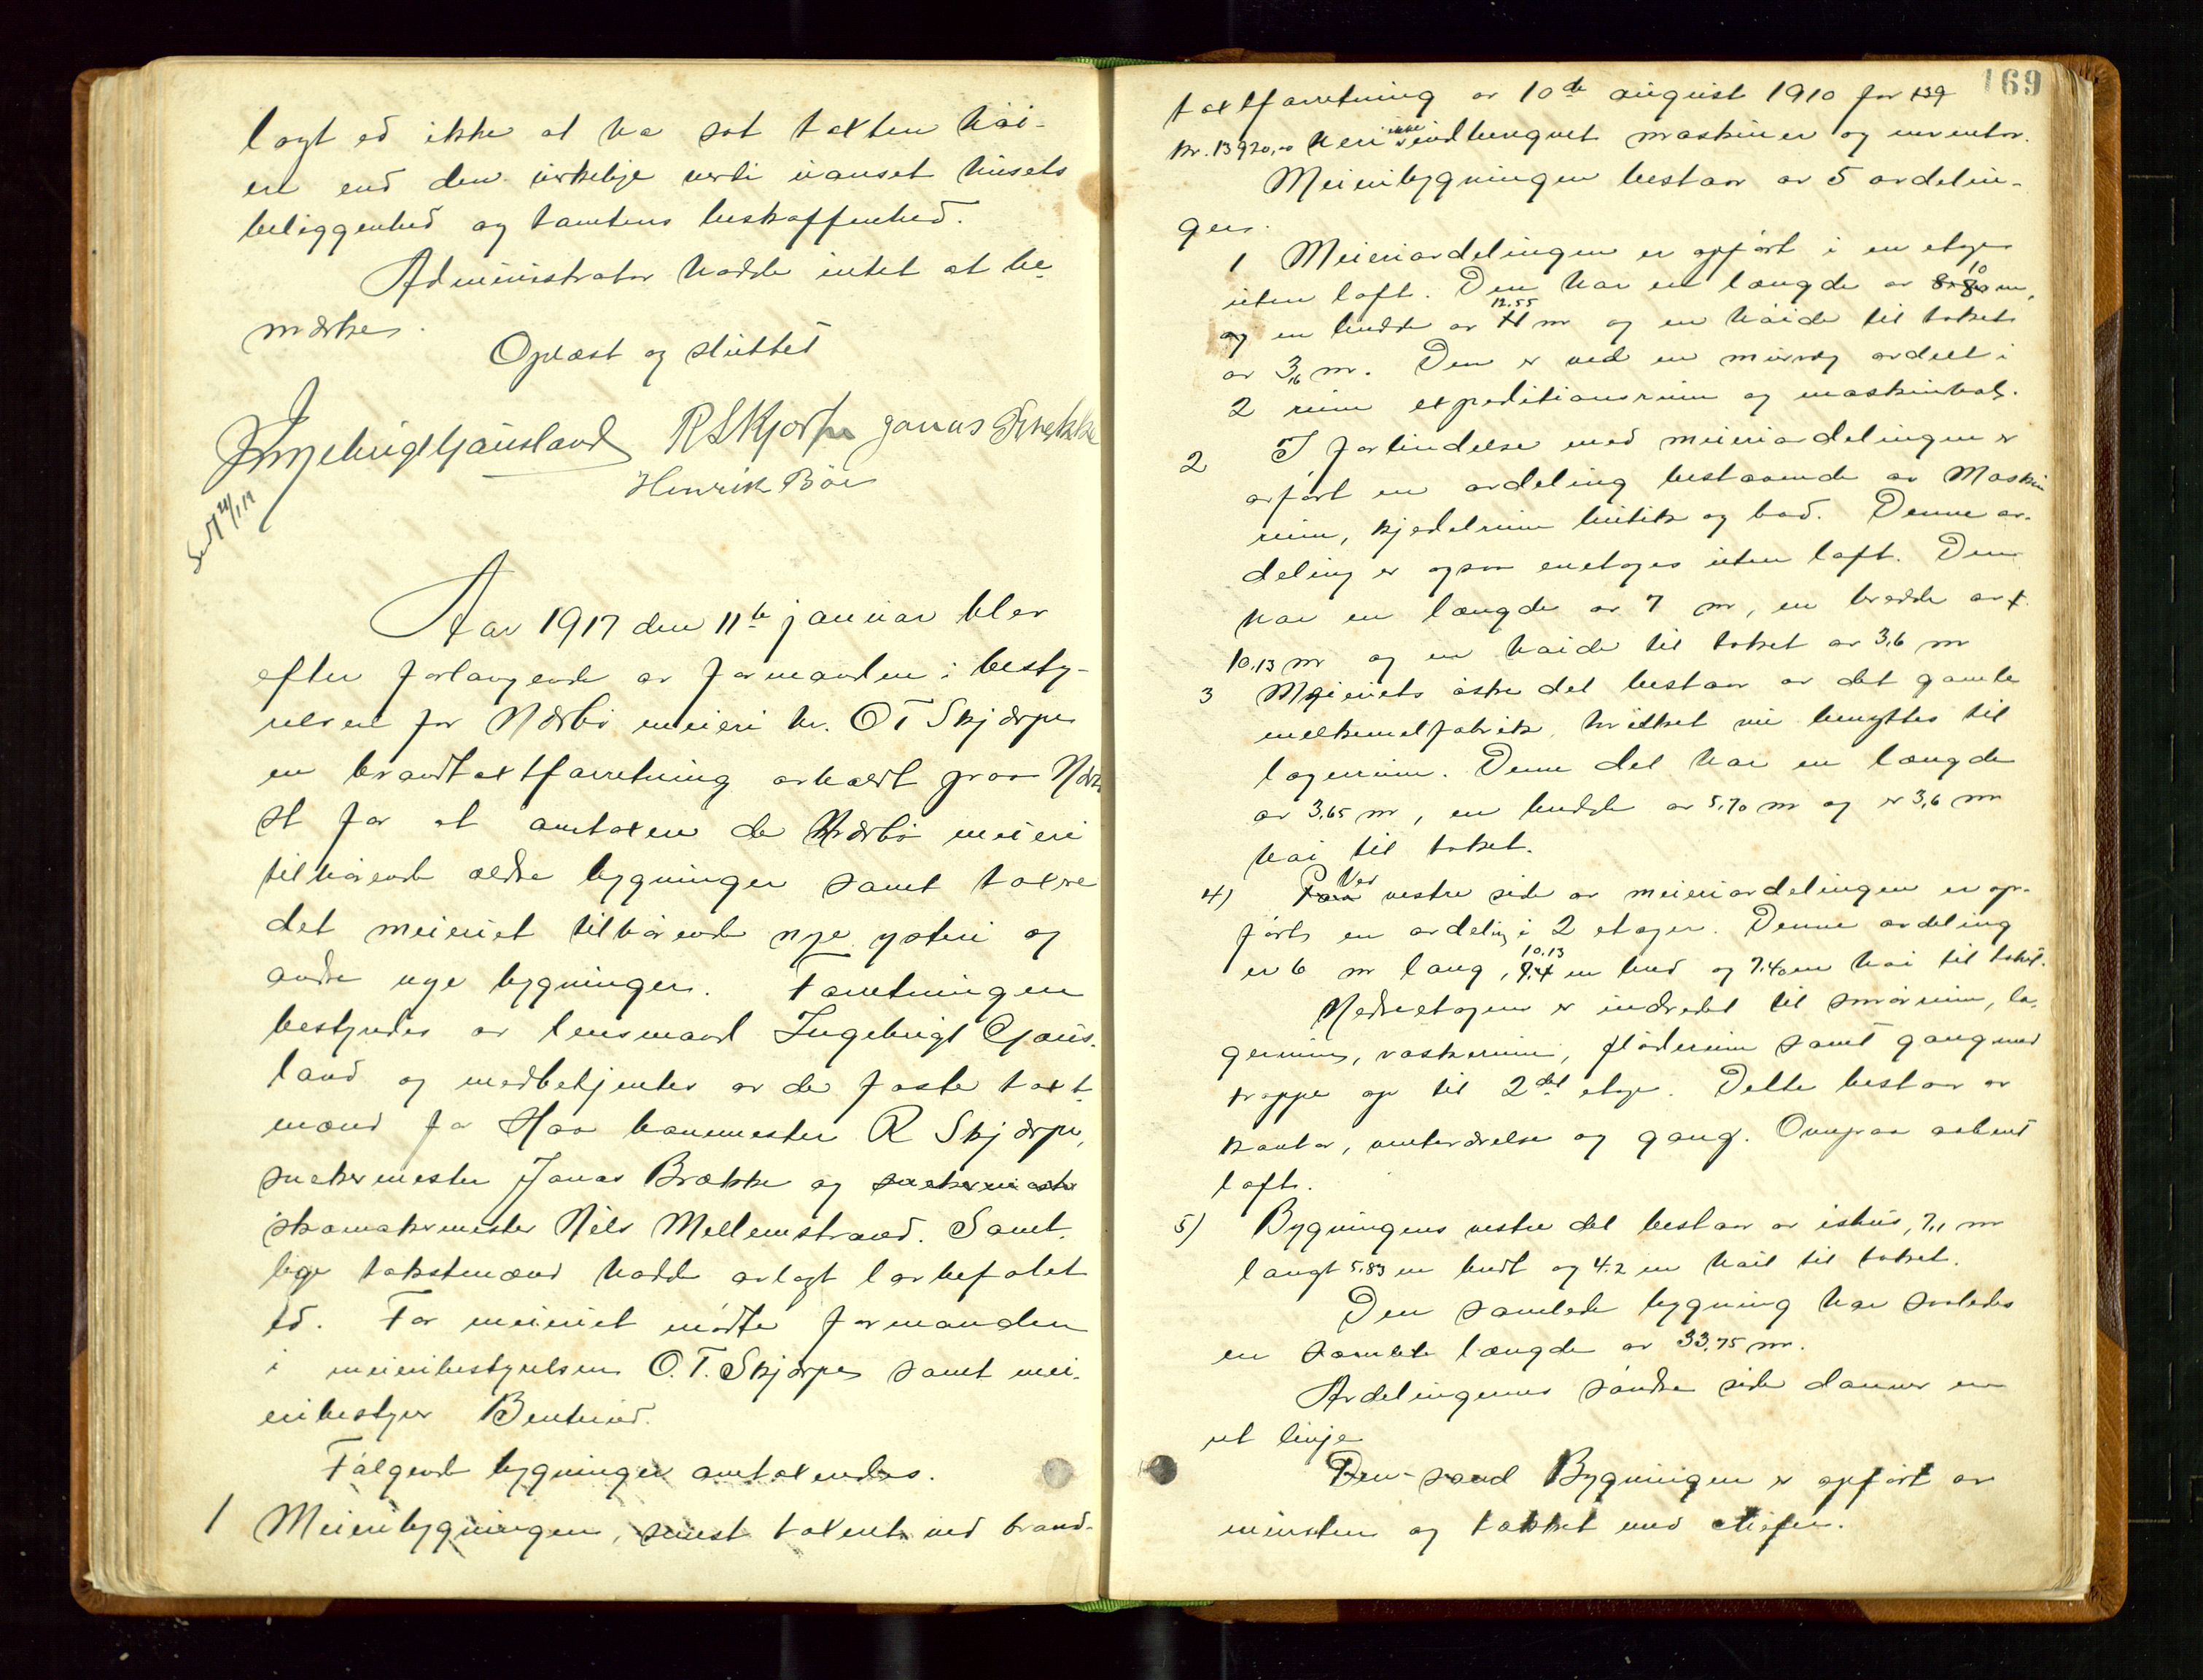 lagt ed ikke at ha sat taxten høi-
ere end den virkelige verdi uanset husets
beliggenhed og tomtens beskaffenhed.
Administrator hadde intet at be-
mærke.
Oplæst og sluttet
Ingebrigt Gausland R Skjærpe Jonas Brække
Henrik Böe
Aar 1917 den 11te januar blev
efter forlangende av formanden i besty-
relsen for Nærbø meieri hr. O T Skjærpe
en brandtaxtforretning avholdt paa Nærbø
st for at omtaxere de Nærbø meieri
tilhørende ældre bygninger samt taxere
det meieriet tilhørende nye ysteri og
andre nye bygninger. Forretningen
bestyredes av lensmand Ingebrigt Gaus-
land og medbetjentes av de faste taxt-
mænd for Haa banemester R Skjærpe,
snekermester Jonas Brække og snekermester
skomakermester Nils Mellemstrand. Samt-
lige takstmænd hadde avlagt lovbefalet
ed. For meieriet møtte formanden
i meieribestyrelsen O.T. Skjærpe samt mei-
eribestyrer
Følgende bygninger omtaxerdes.
1 Meieribygningen, senest taxert ved brand-
169
taxtforretning av 10de august 1910 for 139
kr. 13920,00 heri ikke indberegnet maskiner og inventar.
Meieribygningen bestaar av 5 avdelin-
ger.
1 Meieriavdelingen er opført i en etage
uten loft. Den har en længde av 10 m,
og en bredde av 12.55 m og en høide til taket
av 3,6 m. Den er ved en murvæg avdelt i
2 rum expeditionsrum og maskinhal.
2 I forbindelse med meieriavdelingen er
opført en avdeling bestaaende av Maskin
rum, kjedelrum butik og bad. Denne av-
deling er ogsaa enetages uten loft. Den
har en længde av 7 m, en bredde av
10,13 m og en høide til taket av 3,6 m
3 Meieriets østre del bestaar av det gamle
melkemelfabrik, hvilket nu benyttes til
lagerrum. Denne del har en længde
av 3,65 m, en bredde av 5,70 m og er 3,6 m
høi til taket.
4) Ved vestre side av meieriavdelingen er op-
ført en avdeling i 2 etager. Denne avdeling
er 6 m lang, 10.13 m bred og 7.40 m høi til taket.
Nedre etagen er indredet til smørrum, la-
gerrum, vaskerum, fløderum samt gang med
trappe op til 2del etage. Dette bestaar av
kontor, venteværelse og gang. Ovenpaa aabent
loft.
5) Bygningens vestre del bestaar av ishus, 7,1 m
langt 5,83 m bredt og 4.2 m høit til taket.
Den samlede bygning har saaledes
en samlede længde av 33,75 m.
Avdelingernes søndre side danner en
ret linje
Den Bygningen er opført av
mursten og tækket med skifer.